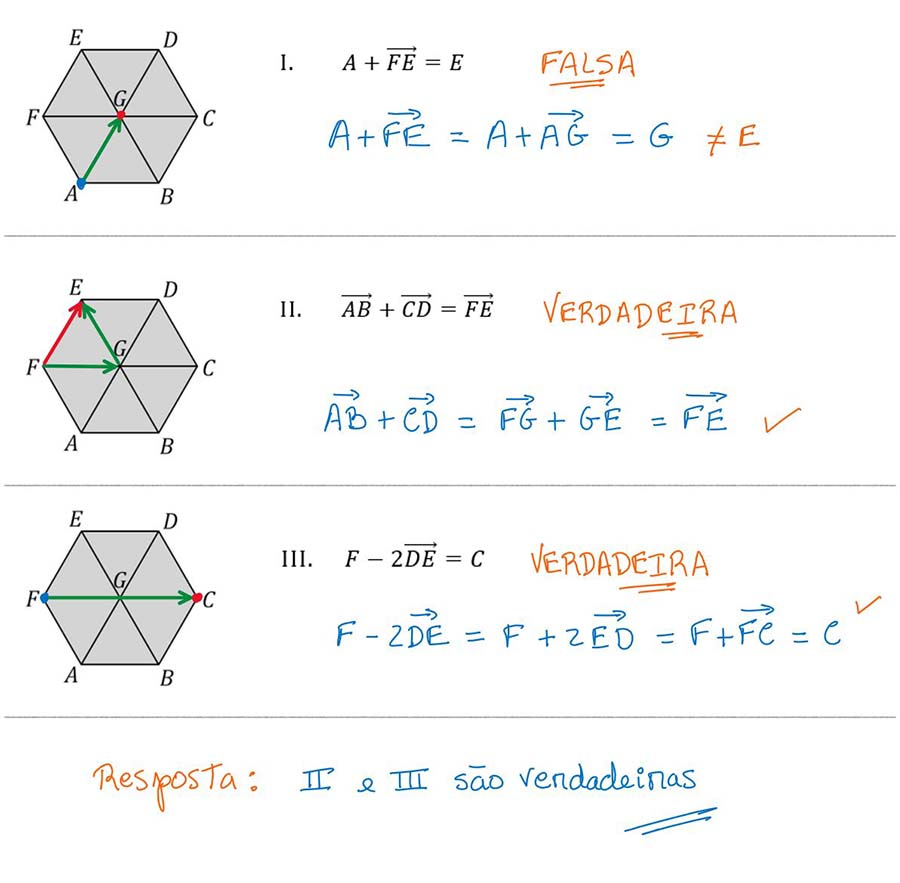 E D
G
F C
A B
I. A + \overrightarrow{FE} = E FALSA
A + \overrightarrow{FE} = A + \overrightarrow{AG} = G ≠ E
E D
G
F C
A B
II. \overrightarrow{AB} + \overrightarrow{CD} = \overrightarrow{FE} VERDADEIRA
\overrightarrow{AB} + \overrightarrow{CD} = \overrightarrow{FG} + \overrightarrow{GE} = \overrightarrow{FE} ✓
E D
G
F C
A B
III. F − 2\overrightarrow{DE} = C VERDADEIRA
F − 2\overrightarrow{DE} = F + 2\overrightarrow{ED} = F + \overrightarrow{FC} = C ✓
Resposta: II e III são verdadeiras